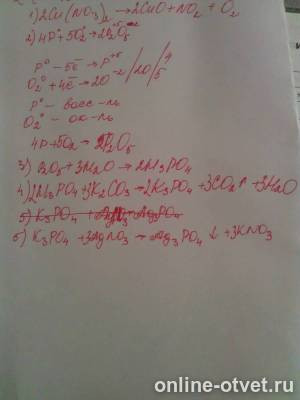 1) 2Cu(NO3)2 → 2CuO + NO2 + O2
2) 4P⁰ + 5O2⁰ → 2P2⁺⁵O5⁻²
P⁰ - 5ē → P⁺⁵
O2⁰ + 4ē → 2O⁻² / 20 / 5
P⁰ - восс-ль
O2⁰ - ок-ль
4P + 5O2 → 2P2O5
3) P2O5 + 3H2O → 2H3PO4
4) 2H3PO4 + 3K2CO3 → 2K3PO4 + 3CO2↑ + 3H2O
5) K3PO4 + Ag3PO4
5) K3PO4 + 3AgNO3 → Ag3PO4 ↓ + 3KNO3
online-otvet.ru